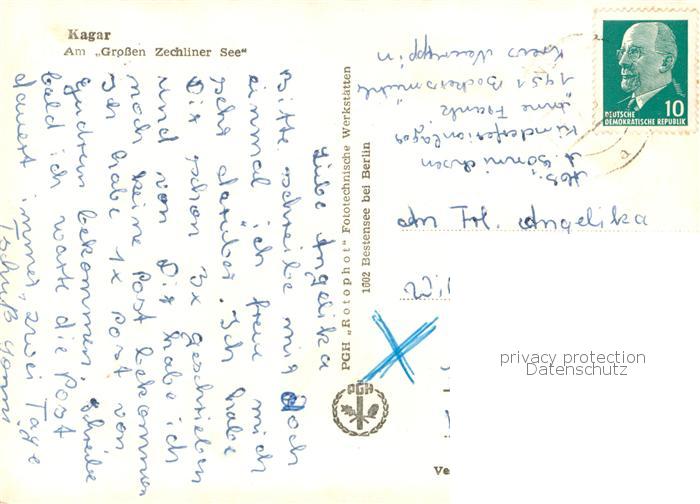 Kagar
Am „Großen Zechliner See"
Liebe Angelika
Bitte schreibe mir doch
einmal ich freue mich
sehr darüber. Ich habe
Dir schon 3x geschrieben
und von Dir habe ich
noch keine Post bekommen
Ich habe 1x Post von
Gudrun bekommen. Schreibe
bald ich warte die Post
dauert immer zwei Tage
Tschüß
PGH „Rotophot" Fototechnische Werkstätten
1602 Bestensee bei Berlin
PGH
Ve
Abs.:
Kinderferienlager
"Anne Frank"
1951
Kreis Neuruppin
DEUTSCHE
DEMOKRATISCHE REPUBLIK
10
An Frl. Angelika
privacy protection
Datenschutz